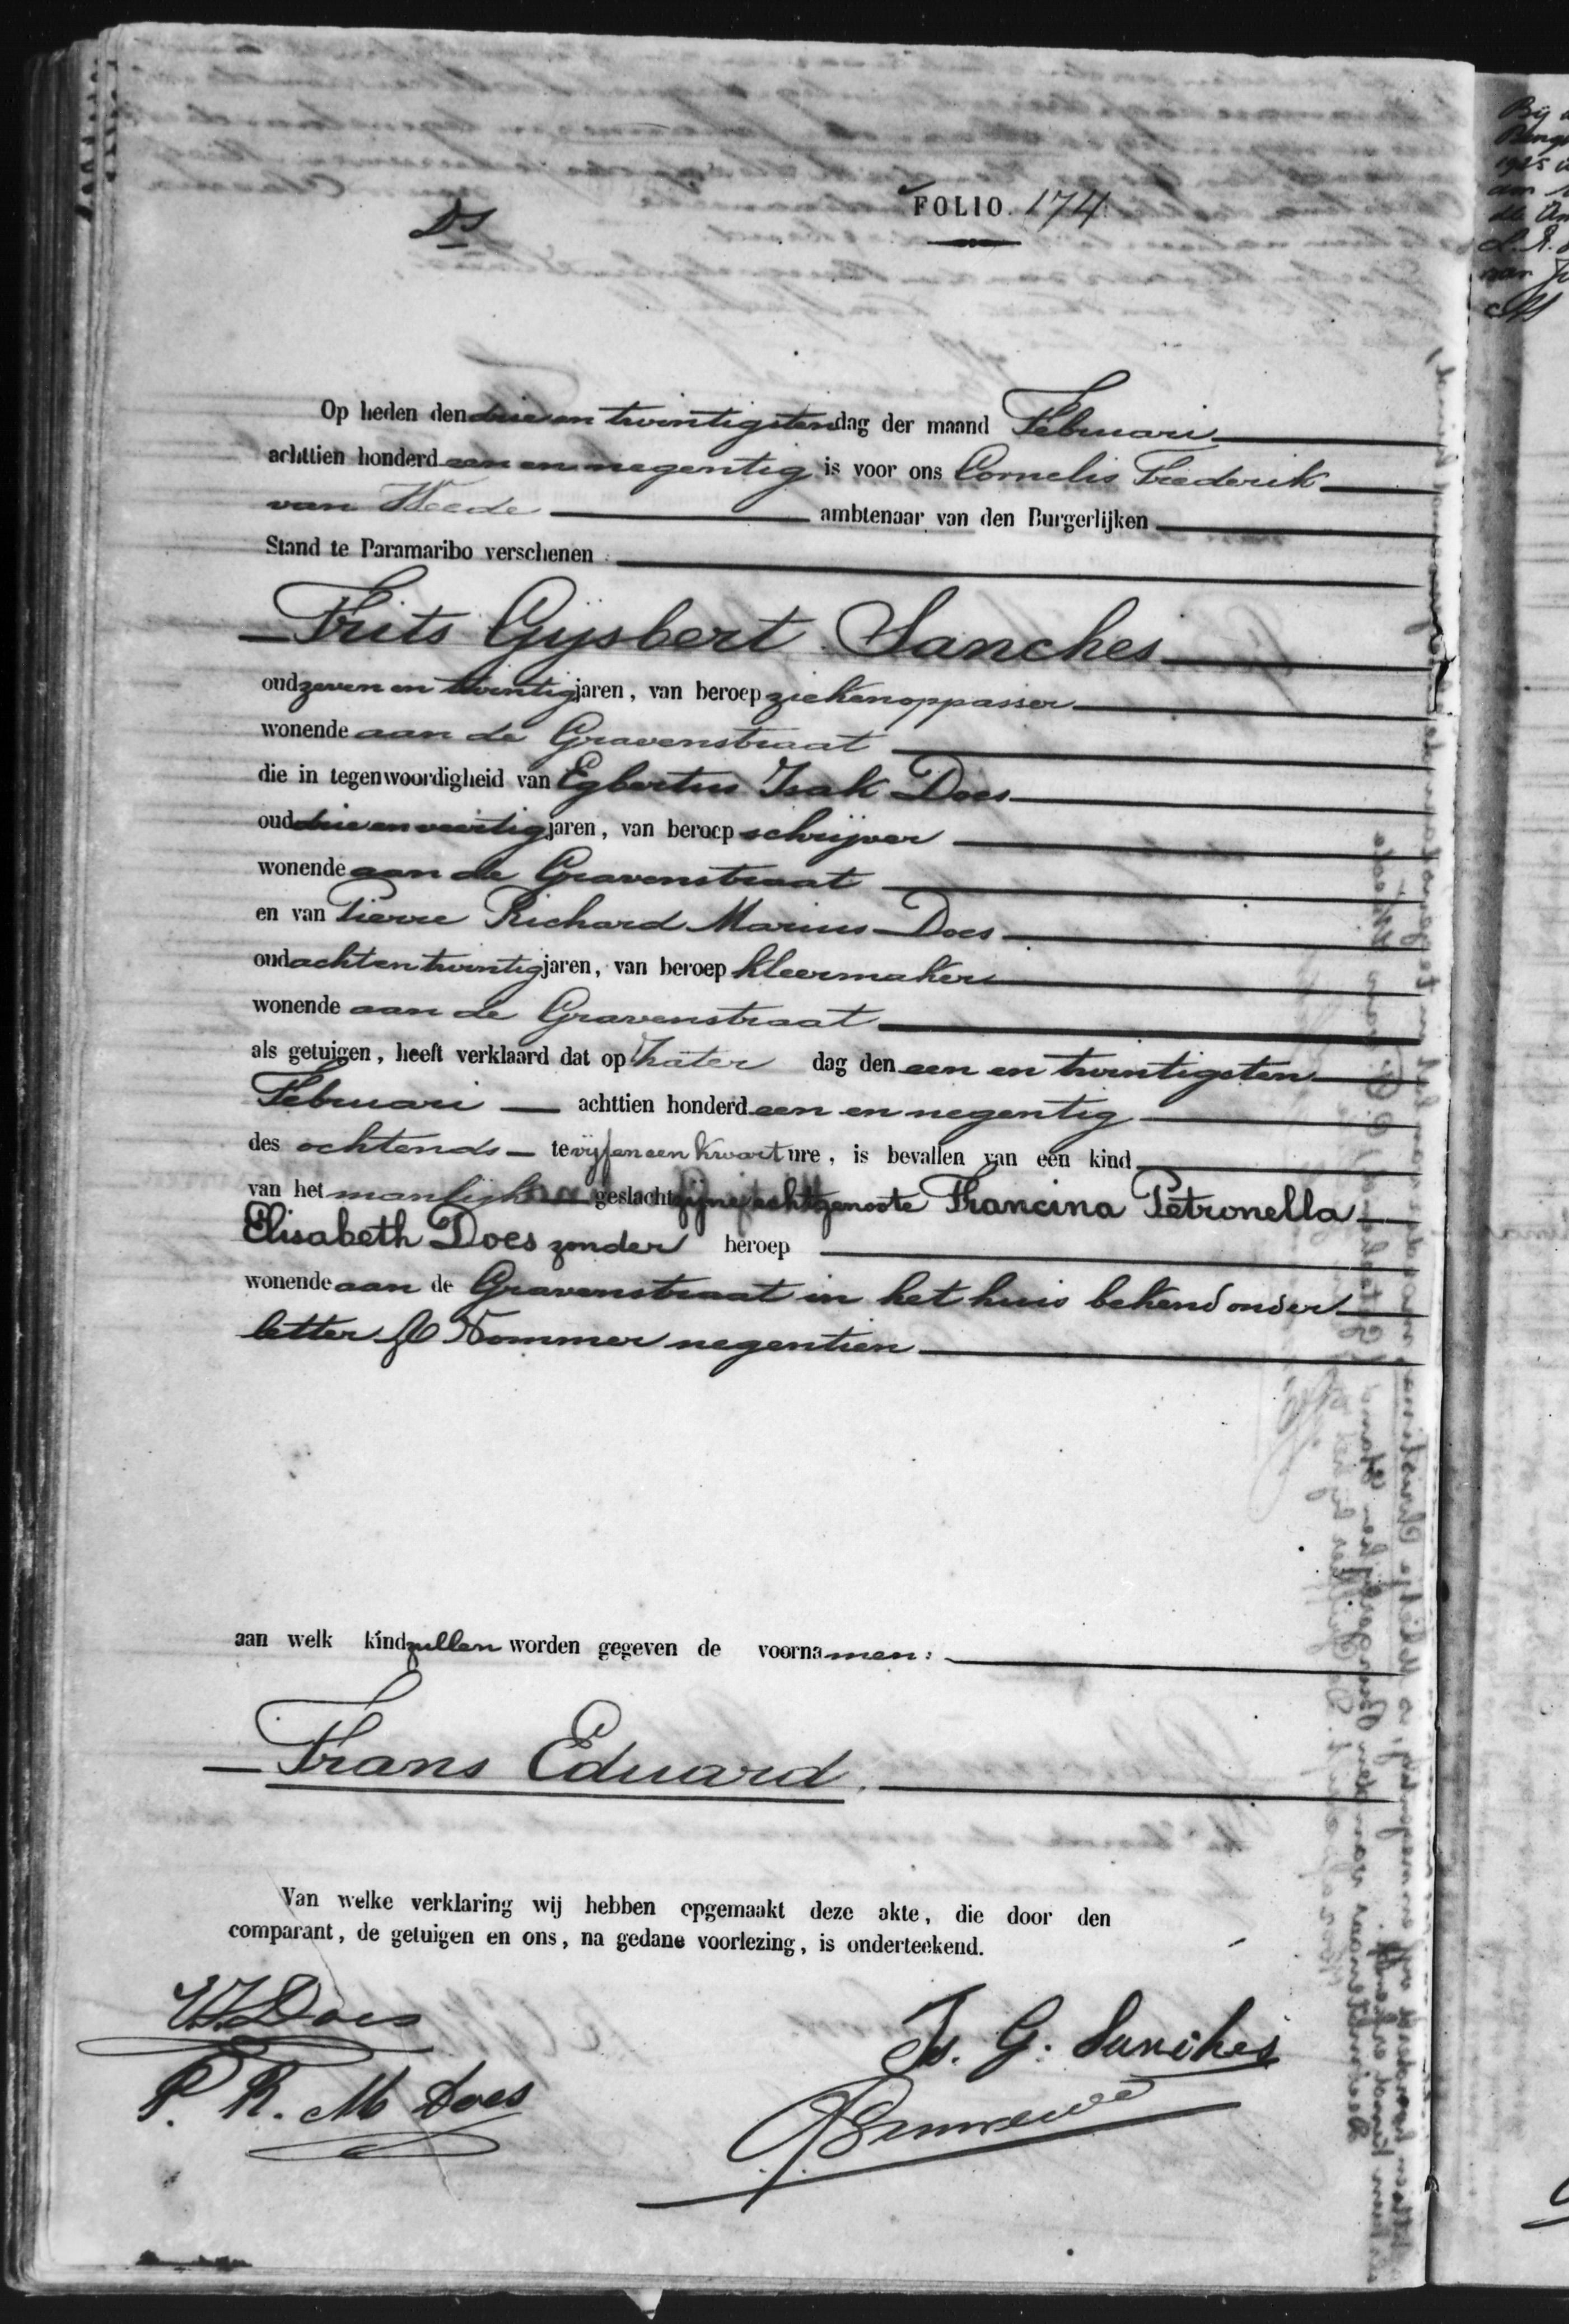 FOLIO. 174
Ds
Op heden den drie en twintigsten dag der maand Februari
achttien honderd een en negentig is voor ons Cornelis Frederik
van Weede ambtenaar van den Burgerlijken
Stand te Paramaribo verschenen
Frits Gijsbert Sanches
oud zeven en twintig jaren, van beroep ziekenoppasser
wonende aan de Gravenstraat
die in tegenwoordigheid van Egbertus Isak Does
oud drie en veertig jaren, van beroep schrijver
wonende aan de Gravenstraat
en van Pierre Richard Marius Does
oud acht en twintig jaren, van beroep kleermaker
wonende aan de Gravenstraat
als getuigen, heeft verklaard dat op Zater dag den een en twintigsten
Februari achttien honderd een en negentig
des ochtends te vijf en een kwart ure, is bevallen van een kind
van het manlijk geslacht zijne echtgenoote Francina Petronella
Elisabeth Does zonder beroep
wonende aan de Gravenstraat in het huis bekend onder
letter Nommer negentien
aan welk kind zullen worden gegeven de voornamen:
Frans Eduard.
Van welke verklaring wij hebben opgemaakt deze akte, die door den
comparant, de getuigen en ons, na gedane voorlezing, is onderteekend.
E I Does
Fs. G. Sanches
P. R. M Does